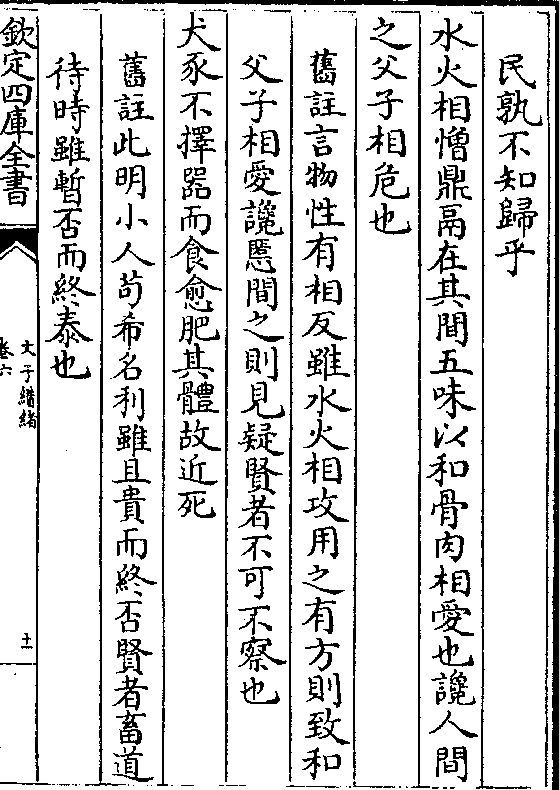 民孰不知歸乎
水火相憎鼎鬲在其間五味以和骨肉相愛也讒人間
之父子相危也
舊註言物性有相反雖水火相攻用之有方則致和
父子相愛讒慝間之則見疑賢者不可不察也
犬豕不擇器而食愈肥其體故近死
舊註此明小人苟希名利雖且貴而終否賢者畜道
待時雖暫否而終泰也
欽定四庫全書
文子纘緒
卷六
十一